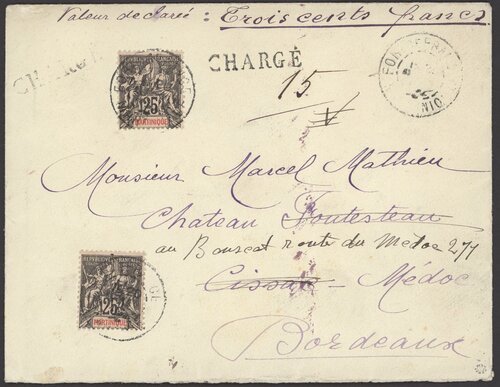 Valeur déclarée : Trois cents francs
CHARGÉ
CHARGÉ
15
RÉPUBLIQUE FRANÇAISE
25
MARTINIQUE
FORT-DE-FRANCE
Monsieur Marcel Mathieu
Chateau Fontesteau
au Bouscat route du Médoc 277
Cissac - Médoc
Bordeaux
RÉPUBLIQUE FRANÇAISE
25
MARTINIQUE